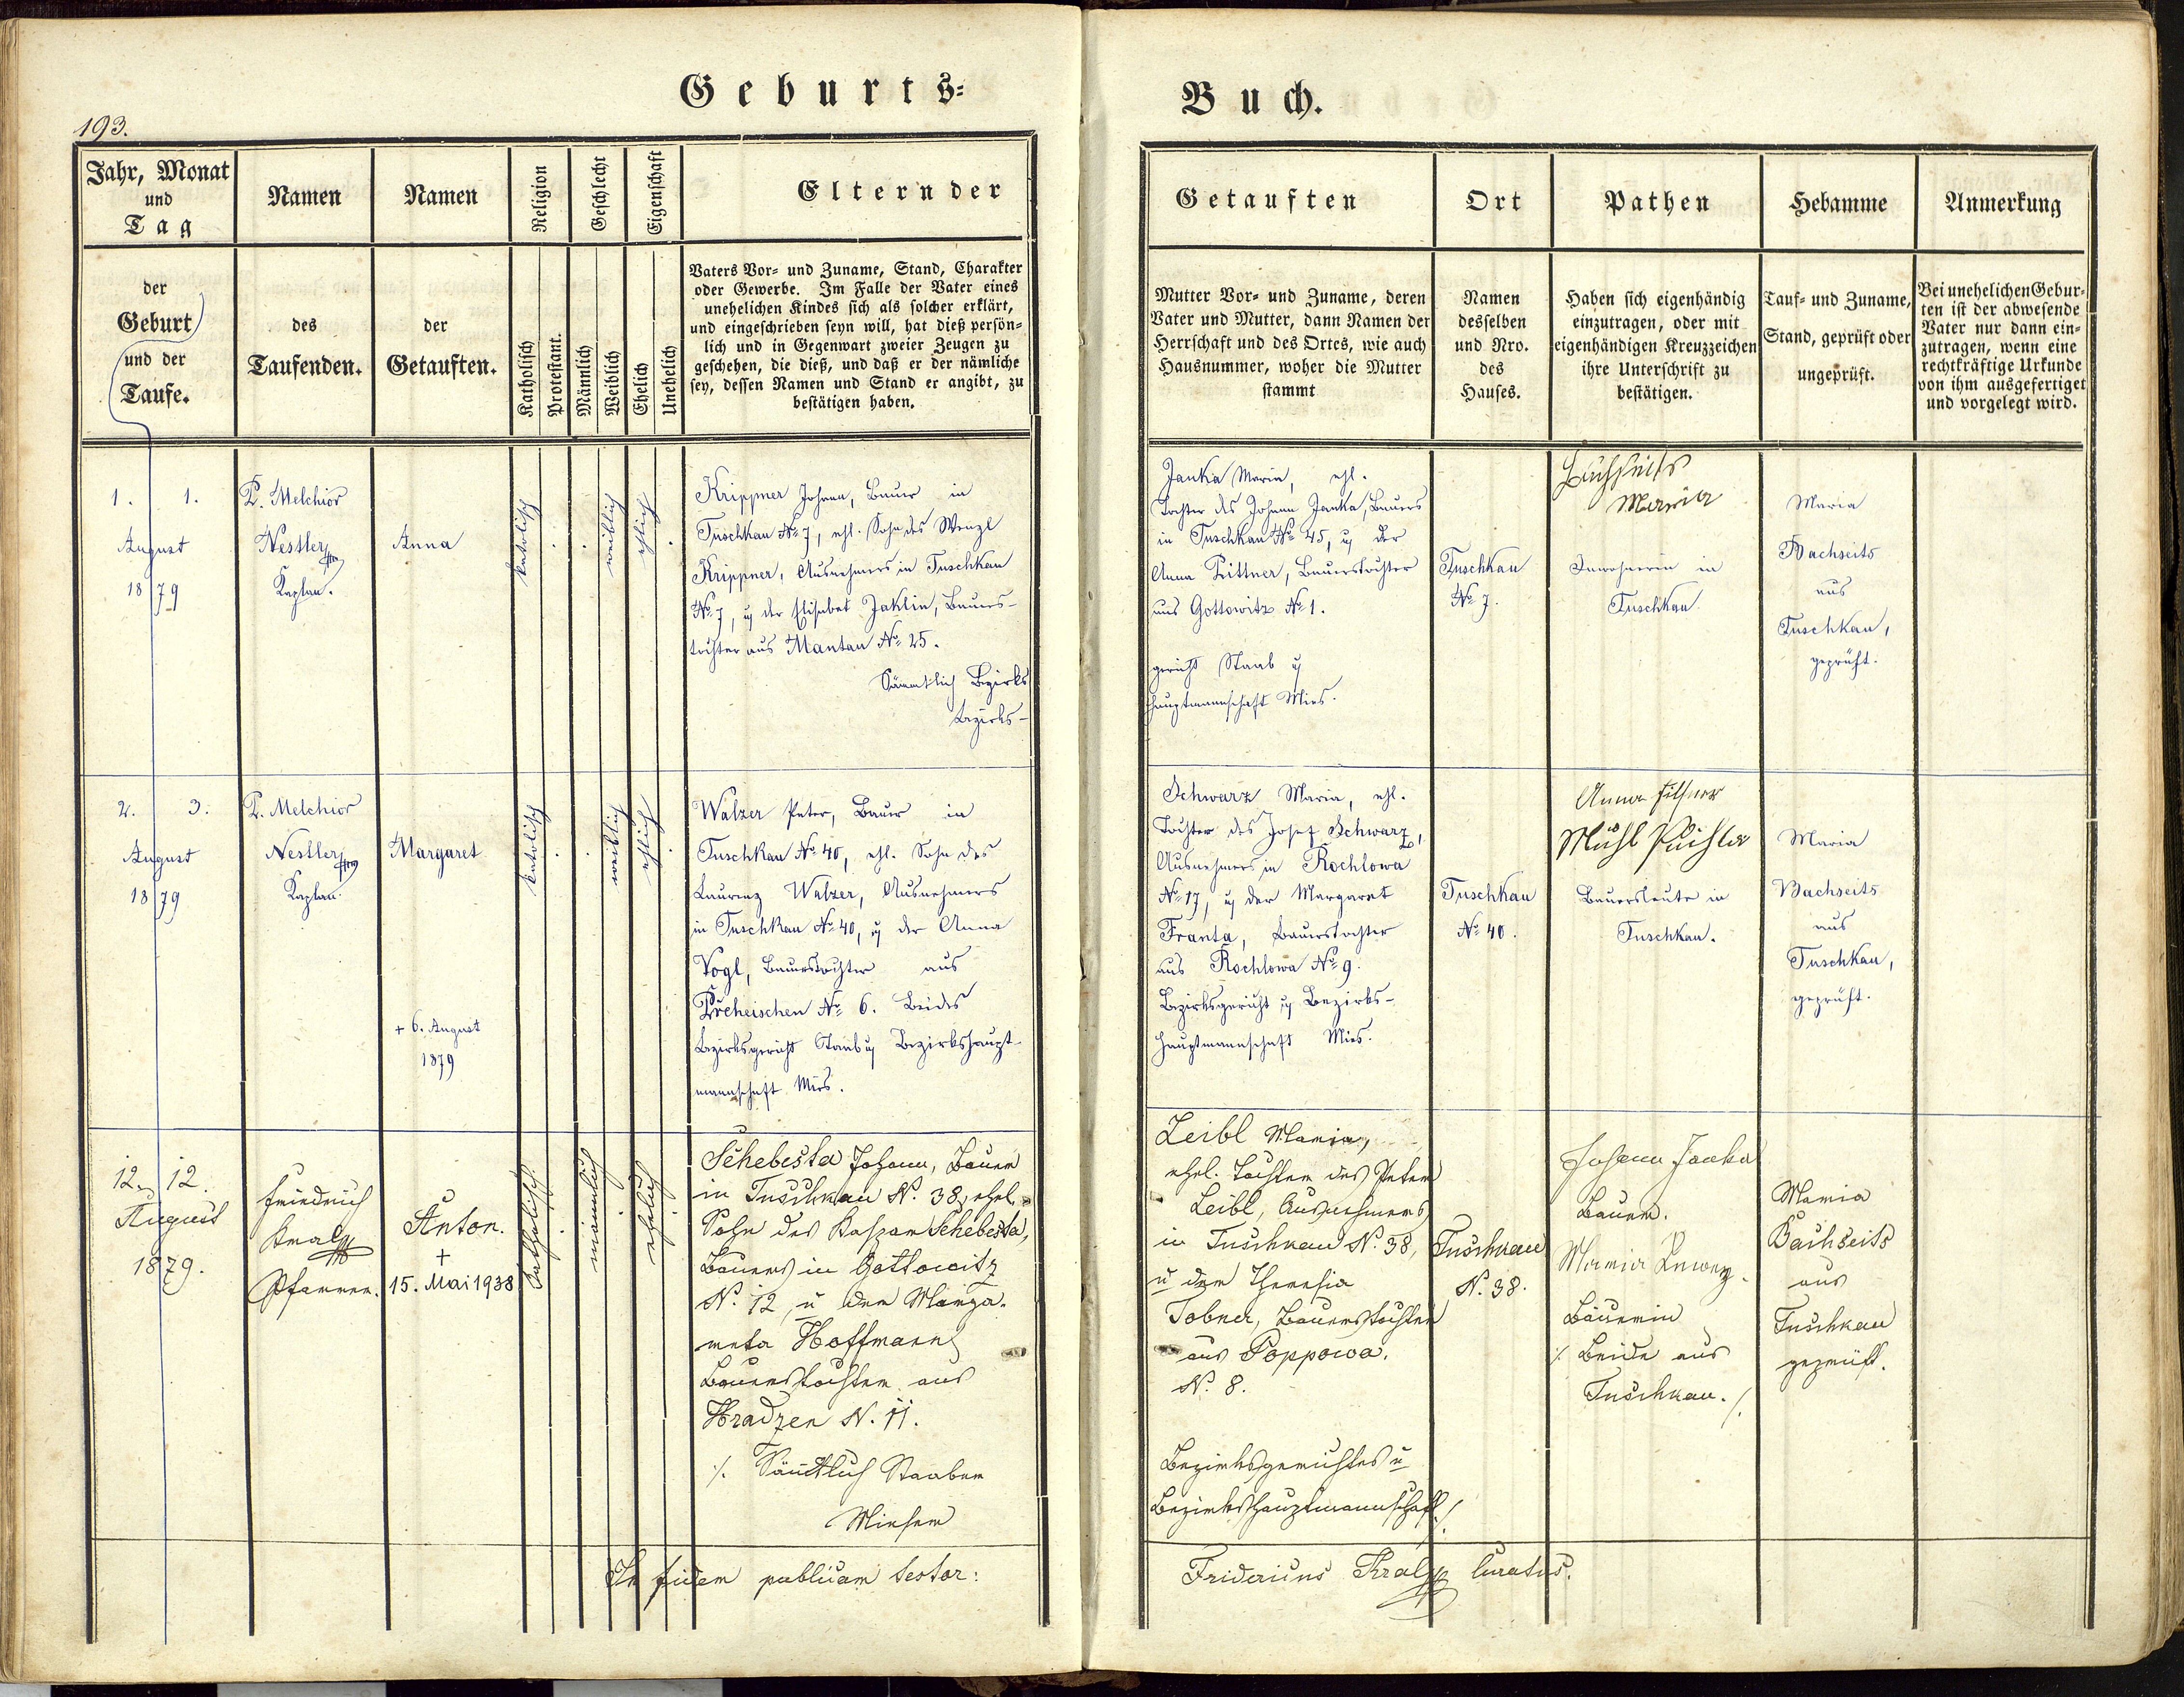 Geburts-
Buch.
193.
Jahr, Monat
und
Tag
Namen
Namen
Religion
Geschlecht
Eigenschaft
Eltern der
Getauften
Ort
Pathen
Hebamme
Anmerkung
der
Geburt
und der
Taufe.
des
Taufenden.
der
Getauften.
Katholisch
Protestant.
Männlich
Weiblich
Ehelich
Unehelich
Vaters Vor- und Zuname, Stand, Charakter
oder Gewerbe. Im Falle der Vater eines
unehelichen Kindes sich als solcher erklärt,
und eingeschrieben seyn will, hat dieß persön-
lich und in Gegenwart zweier Zeugen zu
geschehen, die dieß, und daß er der nämliche
sey, dessen Namen und Stand er angibt, zu
bestätigen haben.
Mutter Vor- und Zuname, deren
Vater und Mutter, dann Namen der
Herrschaft und des Ortes, wie auch
Hausnummer, woher die Mutter
stammt
Namen
desselben
und Nro.
des
Hauses.
Haben sich eigenhändig
einzutragen, oder mit
eigenhändigen Kreuzzeichen
ihre Unterschrift zu
bestätigen.
Tauf- und Zuname,
Stand, geprüft oder
ungeprüft.
Bei unehelichen Gebur-
ten ist der abwesende
Vater nur dann ein-
zutragen, wenn eine
rechtkräftige Urkunde
von ihm ausgefertiget
und vorgelegt wird.
1. 1.
August
1879
P. Melchior
Nestler
Kaplan.
Anna
katolisch
weiblich
ehlich
Krippner Johann, Bauer in
Tuschkau No 7, ehl. Sohn des Wenzl
Krippner, Ausnehmers in Tuschkau
No 7, u der Elisabet Jaklin, Bauers-
tochter aus Mantau No 25.
Sämmtlich Bezirks
Bezirks-
Janka Maria, ehl.
Tochter des Johann Janka, Bauers
in Tuschkau No 45, u der
Anna Pittner, Bauerstochter
aus Gottowitz No 1.
gericht Staab u
hauptmannschaft Mies.
Tuschkau
No 7.
Maria
Inwohnerin in
Tuschkau
Maria
Bachseits
aus
Tuschkau,
geprüft.
2. 3.
August
1879
P. Melchior
Nestler
Kaplan.
Margaret
+ 6. August
1879
katolisch
weiblich
ehlich
Walzer Peter, Bauer in
Tuschkau No 40, ehl. Sohn des
Laurenz Walzer, Ausnehmers
in Tuschkau No 40, u der Anna
Vogl, Bauerstochter aus
Prcheischen No 6. Beides
Bezirksgericht Staab u Bezirkshaupt-
mannschaft Mies.
Schwarz Maria, ehl.
Tochter des Josef Schwarz,
Ausnehmers in Rochlowa
No 17, u der Margaret
Franta, Bauerstochter
aus Rochlowa No 9.
Bezirksgericht u Bezirks-
hauptmannschaft Mies.
Tuschkau
No 40.
Anna
Bauersleute in
Tuschkau.
Maria
Bachseits
aus
Tuschkau,
geprüft.
12. 12.
August
1879.
Friedrich
Kral
Pfarrer.
Anton.
+
15. Mai 1938
katholisch
männlich
ehelich
Schebesta Johann, Bauer
in Tuschkau N. 38, ehel.
Sohn des Kaspar Schebesta,
Bauers in Gottowitz
N. 12, u der Marga-
reta Hoffmann
Bauerstochter aus
Hradzen N. 11.
./. Sämtlich Staaber
Mieser
Leibl Maria,
ehel. Tochter des Peter
Leibl, Ausnehmers
in Tuschkau N. 38,
u der Theresia
Tobner, Bauerstochter
aus Poppowa.
N. 8.
Bezirksgerichtes u
Bezirkshauptmannschaft ./.
Tuschkau
N. 38.
Johann Janka
Bauer.
Maria
Bäuerin
./. Beide aus
Tuschkau. ./.
Maria
Bachseits
aus
Tuschkau
geprüft.
In fidem publicam testor:
Fridericus Kral curatus.